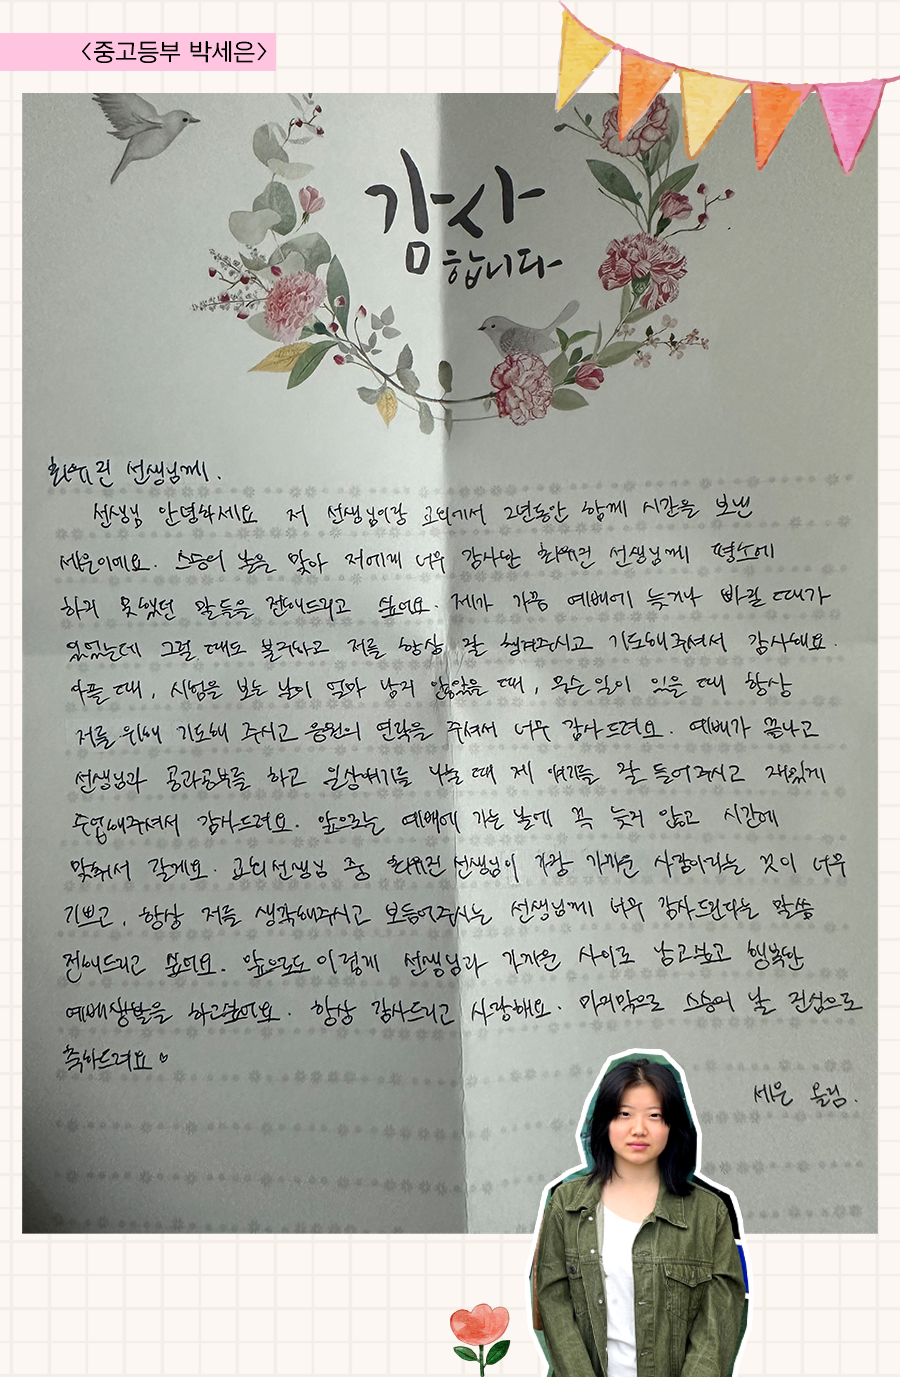 <중고등부 박세은>
감사
합니다
선생님께.
선생님 안녕하세요 저 선생님이랑 교회에서 2년동안 함께 시간을 보낸
세은이에요. 스승의 날을 맞아 저에게 너무 감사한 선생님께 평소에
하지 못했던 말들을 전해드리고 싶어요. 제가 가끔 예배에 늦거나 빠질 때가
있었는데 그럴 때도 불구하고 저를 항상 잘 챙겨주시고 기도해주셔서 감사해요.
아플 때, 시험을 보는 날이 얼마 남지 않았을 때, 무슨 일이 있을 때 항상
저를 위해 기도해 주시고 응원의 연락을 주셔서 너무 감사드려요. 예배가 끝나고
선생님과 공과공부를 하고 일상얘기를 나눌 때 제 얘기를 잘 들어주시고 재밌게
수업해주셔서 감사드려요. 앞으로는 예배에 가는 날에 꼭 늦지 않고 시간에
맞춰서 갈게요. 교회선생님 중 선생님이 가장 가까운 사람이라는 것이 너무
기쁘고, 항상 저를 생각해주시고 보듬어주시는 선생님께 너무 감사드린다는 말씀
전해드리고 싶어요. 앞으로도 이렇게 선생님과 가까운 사이로 남고싶고 행복한
예배생활을 하고싶어요. 항상 감사드리고 사랑해요. 마지막으로 스승의 날 진심으로
축하드려요♡
세은 올림.